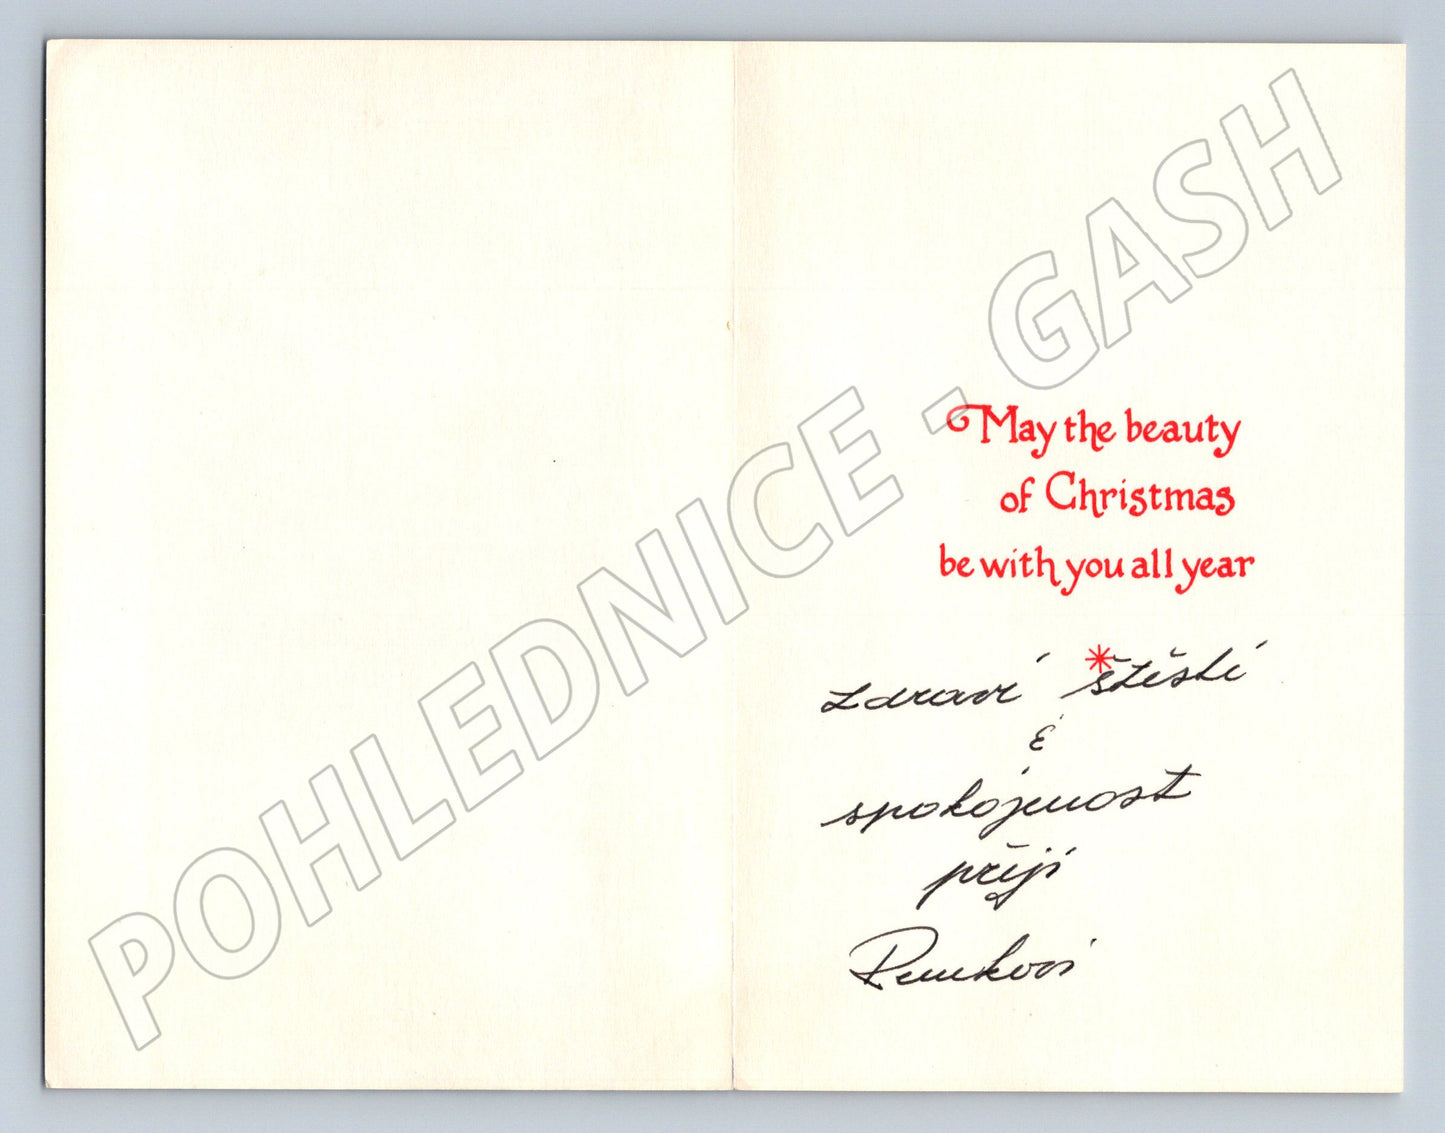 May the beauty
of Christmas
be with you all year
zdraví štěstí
&
spokojenost
přejí
POHLEDNICE - GASH